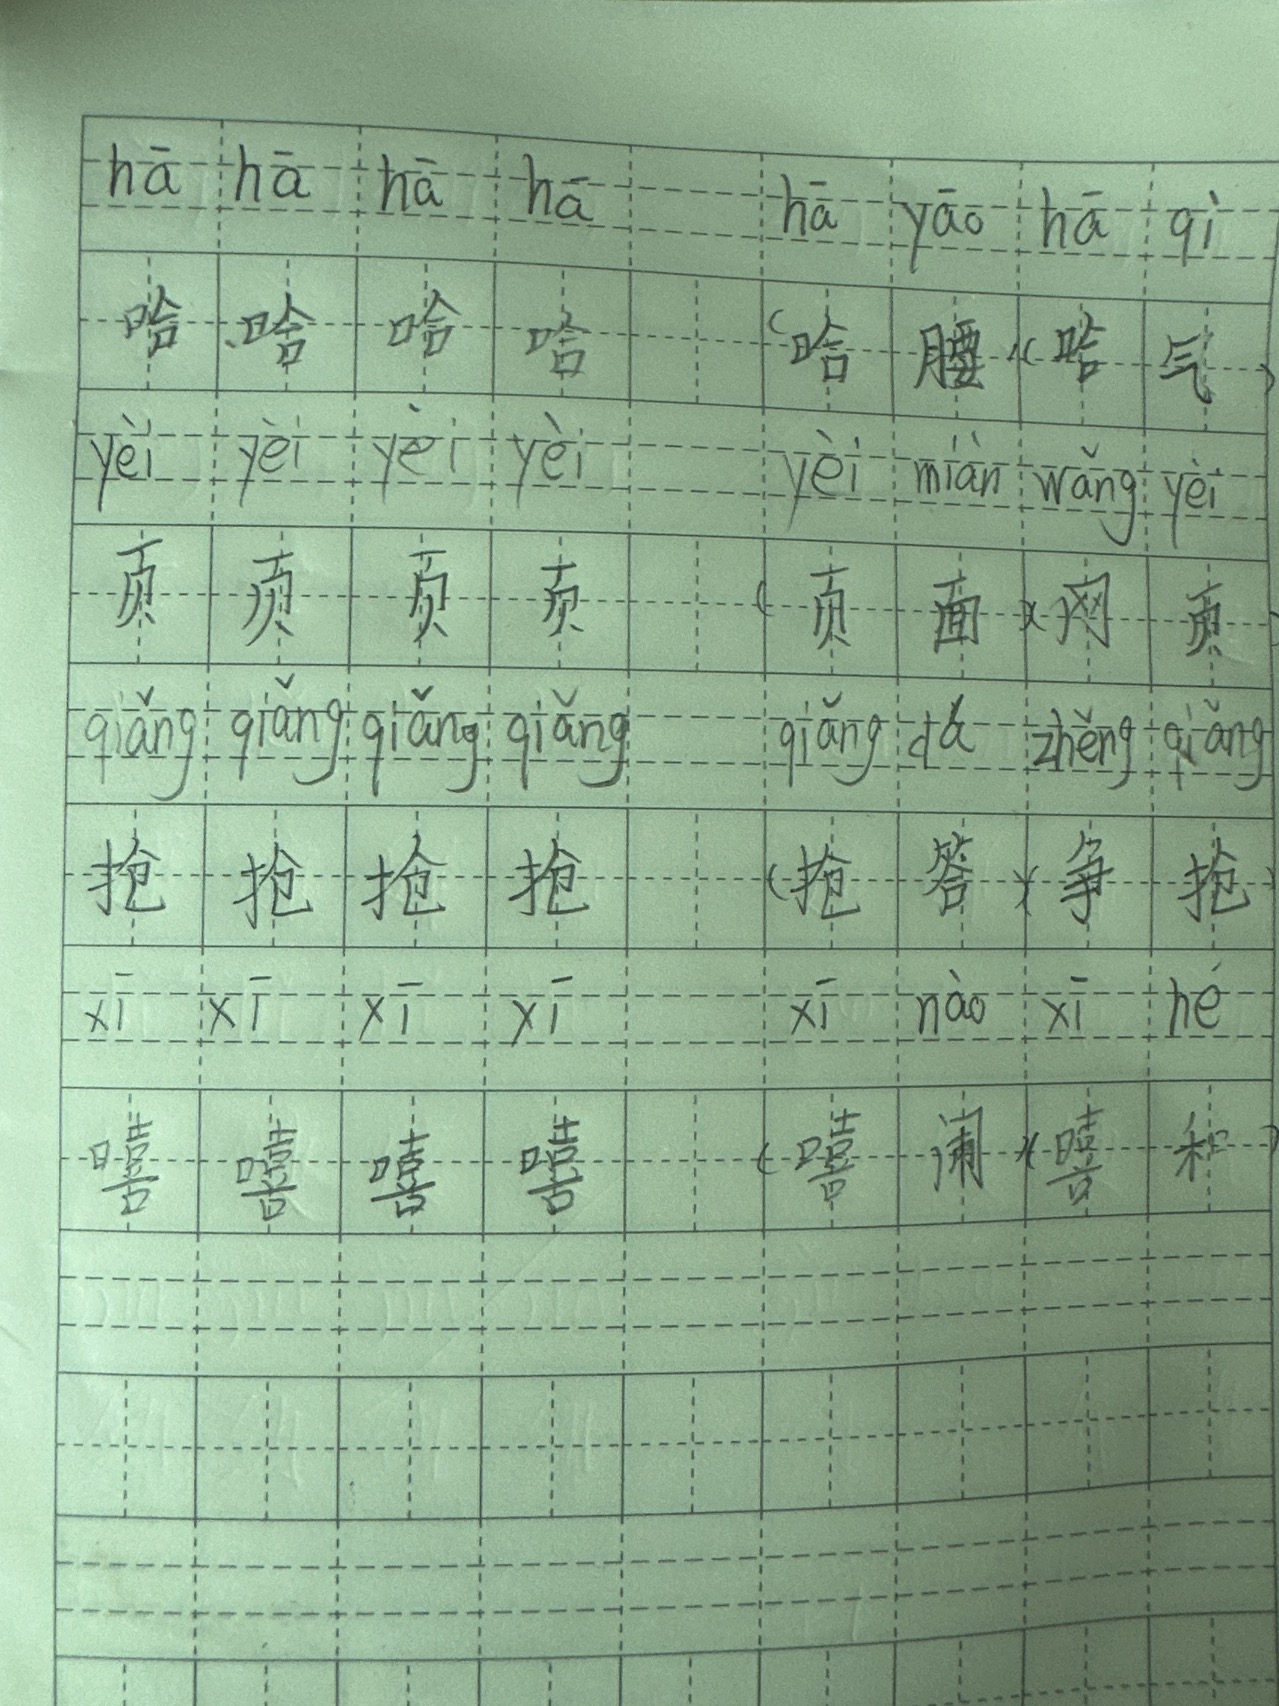 hā hā hā hā hā yāo hā qì
哈 哈 哈 哈 (哈 腰)(哈 气)
yèi yèi yèi yèi yèi miàn wǎng yèi
页 页 页 页 (页 面)(网 页)
qiǎng qiǎng qiǎng qiǎng qiǎng dá zhēng qiǎng
抢 抢 抢 抢 (抢 答)(争 抢)
xī xī xī xī xī nào xī hé
嘻 嘻 嘻 嘻 (嘻 闹)(嘻 和)